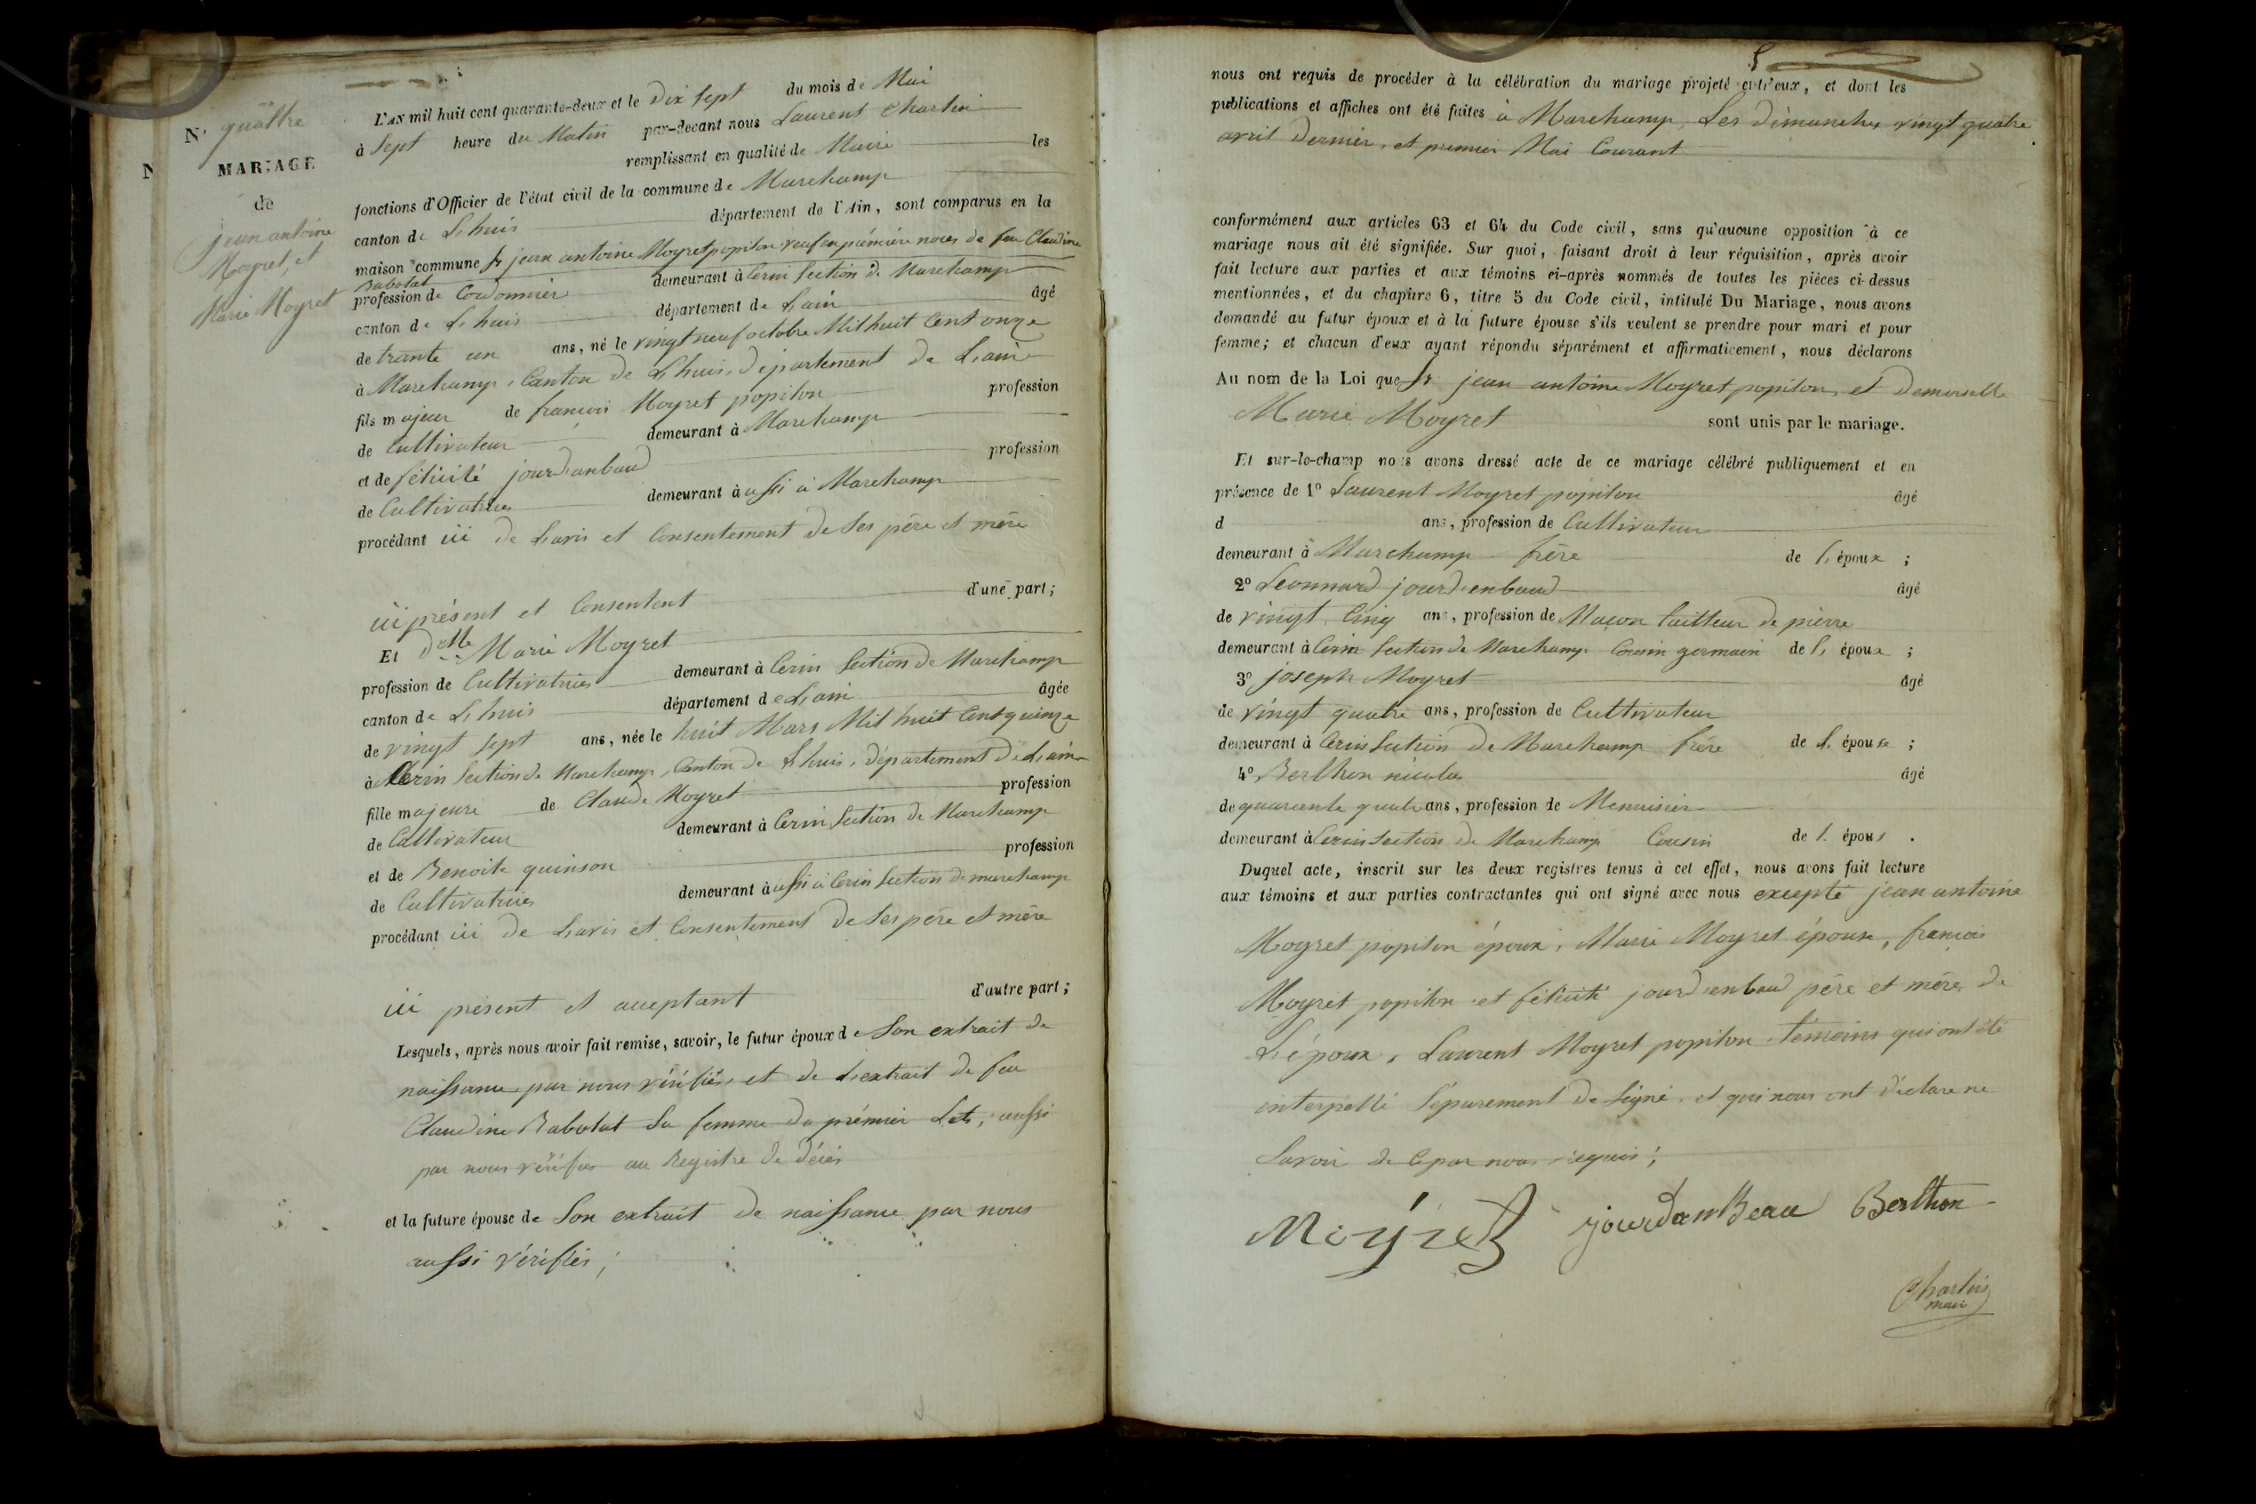 N° quattre
MARIAGE
de
jean antoine
Moyret, et
Marie Moyret
L'AN mil huit cent quarante-deux et le dix sept du mois de Mai
à Sept heure du Matin par-devant nous Laurent Charlin
remplissant en qualité de Maire les
fonctions d'Officier de l'état civil de la commune de Marchamp
canton de L'huis département de l'Ain, sont comparus en la
maison commune Sr jean antoine Moyret popiton veuf en prémière noces de feu Claudine
Rabolat
profession de Cordonnier demeurant à Cerin Section de Marchamp
canton de L'huis département de L'ain âgé
de trante un ans, né le vingt neuf octobre Mil huit Cent onze
à Marchamp, Canton de L'huis, département de L'ain
fils majeur de francois Moyret popiton profession
de Cultivateur demeurant à Marchamp
et de félicité jourdanbaud profession
de Cultivatrice demeurant à aussi à Marchamp
procédant ici de L'avis et Consentement de Ses père et mère
ici présent et Consentent d'une part;
Et delle Marie Moyret
profession de Cultivatrice demeurant à Cerin Section de Marchamp
canton de L'huis département de L'ain âgée
de vingt sept ans, née le huit Mars Mil huit Cent quinze
à Cerin Section de Marchamp, Canton de L'huis, département de L'ain
fille majeure de Claude Moyret profession
de Cultivateur demeurant à Cerin Section de Marchamp
et de Benoite quinson profession
de Cultivatrice demeurant à aussi à Cerin Section de marchamp
procédant ici de L'avis et Consentement de Ses père et mère
ici présent et acceptant d'autre part;
Lesquels, après nous avoir fait remise, savoir, le futur époux de Son extrait de
naissance par nous vérifiés et de L'extrait de feu
Claudine Rabolat Sa femme du prémier aussi
par nous vérifiés au Registre de décès
et la future épouse de Son extrait de naissance par nous
aussi vérifiés;
5
nous ont requis de procéder à la célébration du mariage projeté entr'eux, et dont les
publications et affiches ont été faites à Marchamp, Les dimanches vingt quatre
avril dernier, et premier Mai Courant
conformément aux articles 63 et 64 du Code civil, sans qu'aucune opposition à ce
mariage nous ait été signifiée. Sur quoi, faisant droit à leur réquisition, après avoir
fait lecture aux parties et aux témoins ci-après nommés de toutes les pièces ci-dessus
mentionnées, et du chapitre 6, titre 5 du Code civil, intitulé Du Mariage, nous avons
demandé au futur époux et à la future épouse s'ils veulent se prendre pour mari et pour
femme; et chacun d'eux ayant répondu séparément et affirmativement, nous déclarons
Au nom de la Loi que Sr jean antoine Moyret popiton, et demoiselle
Marie Moyret sont unis par le mariage.
Et sur-le-champ nous avons dressé acte de ce mariage célébré publiquement et en
présence de 1° Laurent Moyret popiton âgé
d ans, profession de Cultivateur
demeurant à Marchamp frère de L'époux ;
2° Leonnard jourdenbaud âgé
de vingt Cinq ans, profession de Maçon tailleur de pierre
demeurant à Cerin Section de Marchamp Cousin germain de L'époux ;
3° joseph Moyret âgé
de vingt quatre ans, profession de Cultivateur
demeurant à Cerin Section de Marchamp frére de L'épouse ;
4° Berthon nicolas âgé
de quarente quatre ans, profession de Menuisier
demeurant à Cerin Section de Marchamp Cousin de L'épous .
Duquel acte, inscrit sur les deux registres tenus à cet effet, nous avons fait lecture
aux témoins et aux parties contractantes qui ont signé avec nous excepté jean antoine
Moyret popiton époux, Marie Moyret épouse, francois
Moyret popiton et félicité jourdenbaud père et mère de
L'époux, Laurent Moyret popiton témoins qui ont été
interpellé Séparement de Signé, et qui nous ont déclare ne
Savoir de Ce par nous requis;
Moyret jourdanBeau Berthon
Charlin
maire